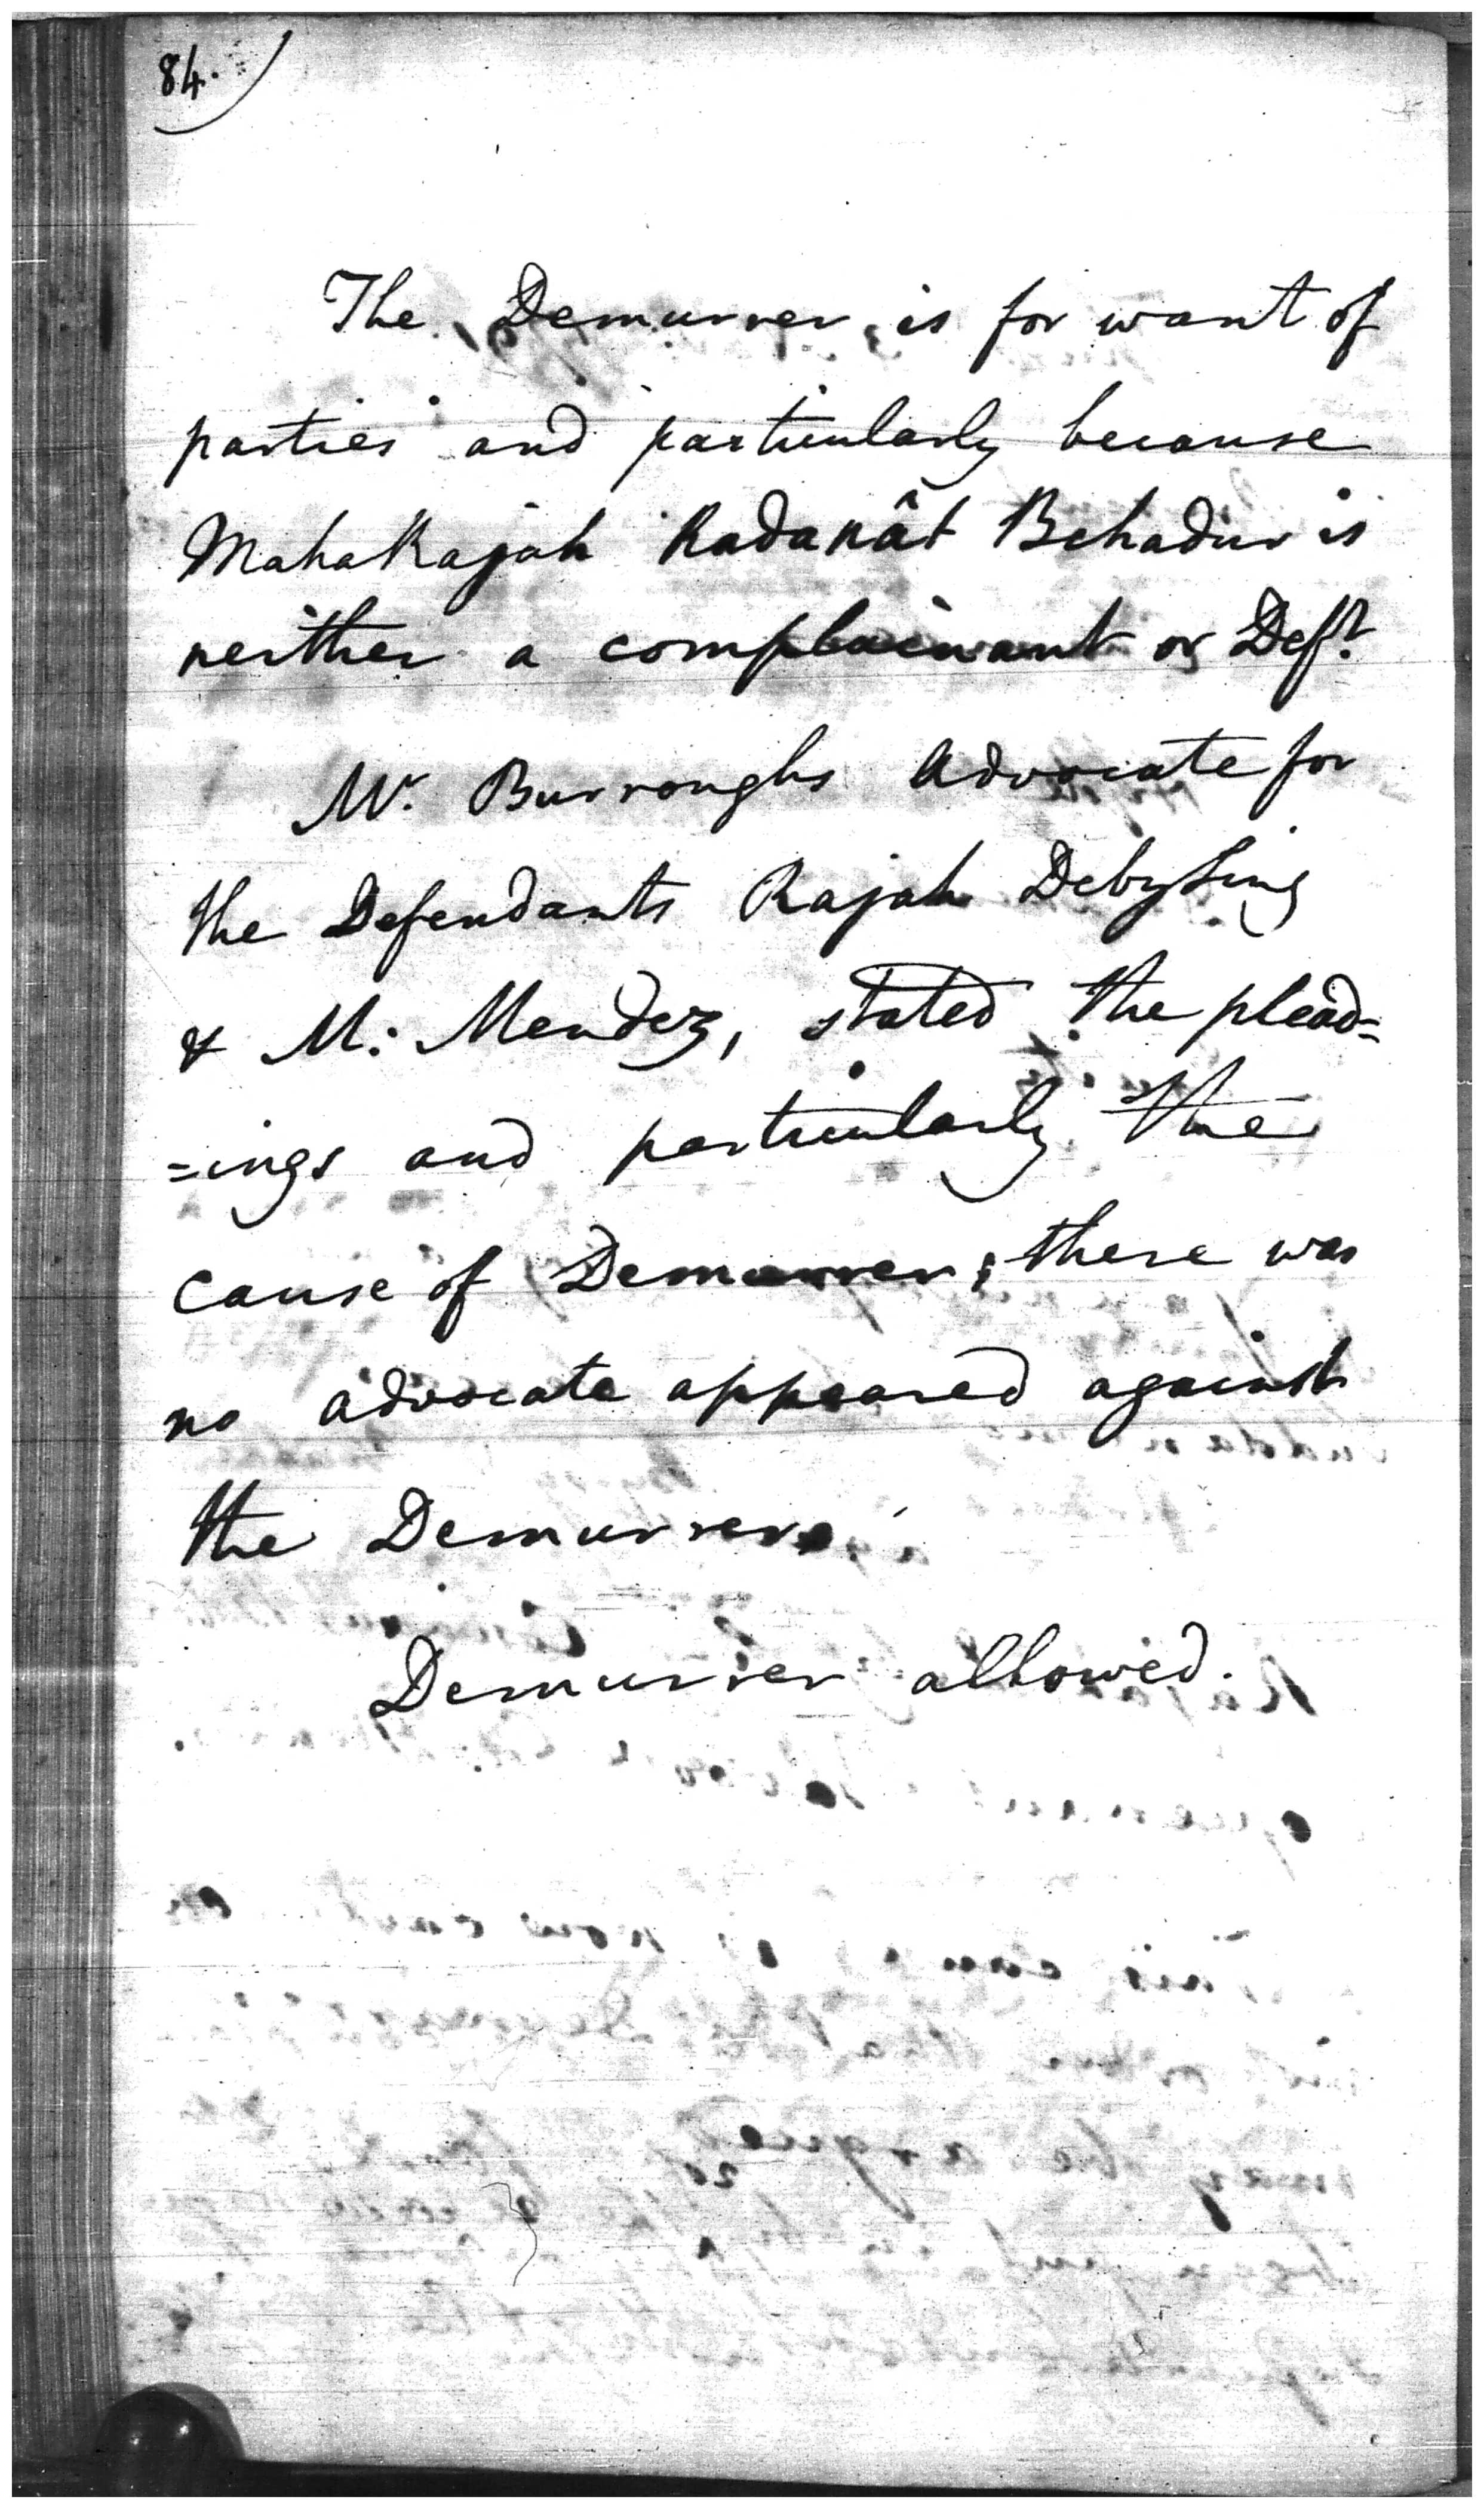 84.
The Demurrer, is for want of
parties and particularly because
MahaRajah Radanât Behadur is
neither a complainant or Deft.
Mr. Burroughs Advocate for
the Defendants Rajah DebySing
& Mr. Mendez, stated the plead=
=ings and particularly the
cause of Demurrer; there was
no advocate appeared against
the Demurrer.
Demurrer allowed.